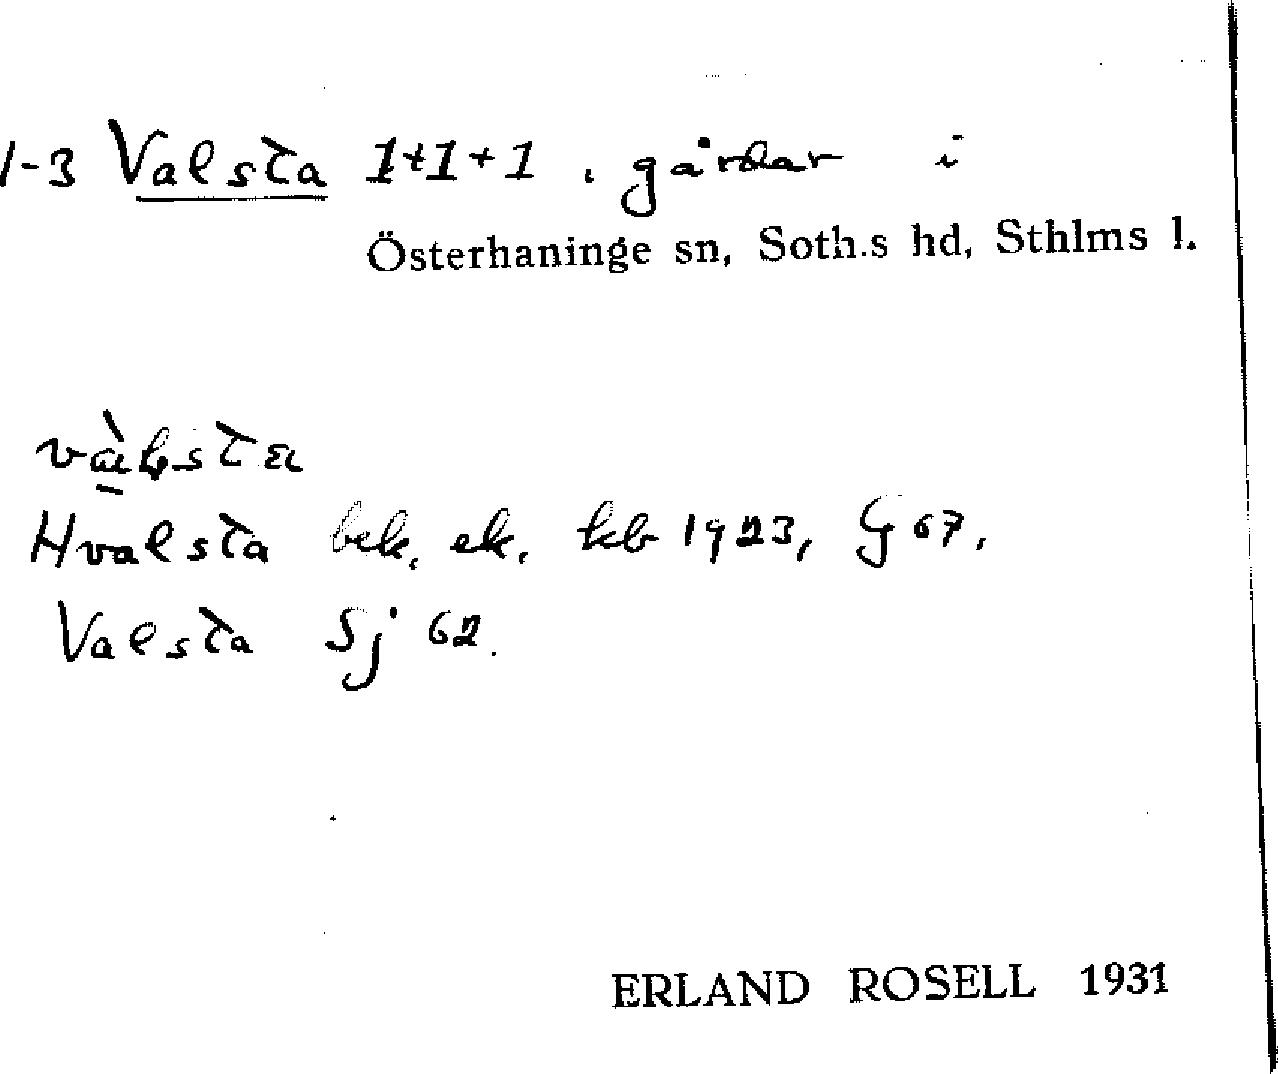 1-3 Valsta 1+1+1, gårdar i
Österhaninge sn, Soth.s hd, Sthlms l.
Hvalsta bek. ek. kb 1923, G 67.
Valsta Sj 62.
ERLAND ROSELL 1931